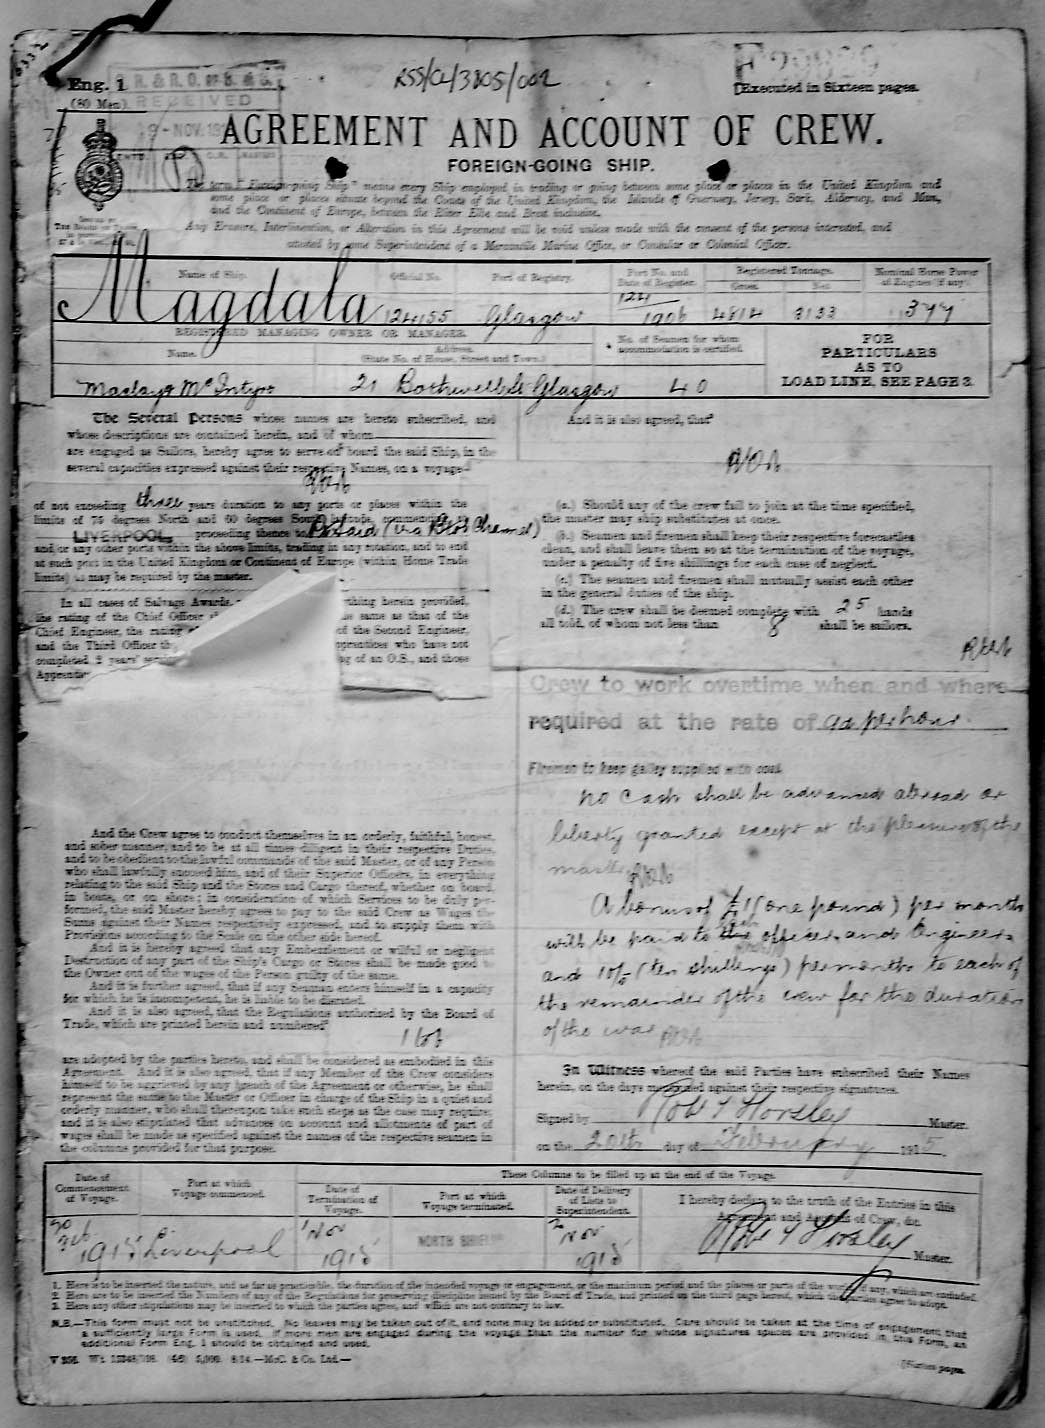 RSS/CL/3805/002
Eng. 1
(80 Men)
R. & R. O. of S. & S.
RECEIVED
9-NOV.191
[Executed in Sixteen pages.
AGREEMENT AND ACCOUNT OF CREW.
FOREIGN-GOING SHIP.
The term "Foreign-going Ship" means every Ship employed in trading or going between some place or places in the United Kingdom and
some place or places situate beyond the Coasts of the United Kingdom, the Islands of Guernsey, Jersey, Sark, Alderney, and Man,
and the Continent of Europe, between the River Elbe and Brest inclusive.
Any Erasure, Interlineation, or Alteration in this Agreement will be void unless made with the consent of the persons interested, and
attested by some Superintendent of a Mercantile Marine Office, or Consular or Colonial Officer.
Name of Ship. Official No. Port of Registry. Port No. and Date of Register. Registered Tonnage. Gross. Net. Nominal Horse Power of Engines (if any)
Magdala 124155 Glasgow 124 1906 4814 3133 377
REGISTERED MANAGING OWNER OR MANAGER.
Name. Address. (State No. of House, Street and Town.)
No. of Seamen for whom accommodation is certified.
FOR
PARTICULARS
AS TO
LOAD LINE, SEE PAGE 3.
Maclay & McIntyre 21 Bothwell St Glasgow 40
The Several Persons whose names are hereto subscribed, and
whose descriptions are contained herein, and of whom
are engaged as Sailors, hereby agree to serve on board the said Ship, in the
several capacities expressed against their respective Names, on a voyage
of not exceeding three years duration to any ports or places within the
limits of 75 degrees North and 60 degrees South latitude, commencing at
LIVERPOOL, proceeding thence to
and/or any other ports within the above limits, trading in any rotation, and to end
at such port in the United Kingdom or Continent of Europe (within Home Trade
limits) as may be required by the master.
In all cases of Salvage Awards, thing herein provided,
the rating of the Chief Officer same as that of the
Chief Engineer, the rating of the Second Engineer,
and the Third Officer who have not
completed 2 years' of an O.S., and those
And the Crew agree to conduct themselves in an orderly, faithful, honest,
and sober manner, and to be at all times diligent in their respective Duties,
and to be obedient to the lawful commands of the said Master, or of any Person
who shall lawfully succeed him, and of their Superior Officers, in everything
relating to the said Ship and the Stores and Cargo thereof, whether on board,
in boats, or on shore; in consideration of which Services to be duly per-
formed, the said Master hereby agrees to pay to the said Crew as Wages the
Sums against their Names respectively expressed, and to supply them with
Provisions according to the Scale on the other side hereof.
And it is hereby agreed that any Embezzlement or wilful or negligent
Destruction of any part of the Ship's Cargo or Stores shall be made good to
the Owner out of the wages of the Person guilty of the same.
And it is further agreed, that if any Seaman enters himself in a capacity
for which he is incompetent, he is liable to be disrated.
And it is also agreed, that the Regulations authorised by the Board of
Trade, which are printed herein and numbered
1 to 6
are adopted by the parties hereto, and shall be considered as embodied in this
Agreement. And it is also agreed, that if any Member of the Crew considers
himself to be aggrieved by any breach of the Agreement or otherwise, he shall
represent the same to the Master or Officer in charge of the Ship in a quiet and
orderly manner, who shall thereupon take such steps as the case may require;
and it is also stipulated that advances on account and allotments of part of
wages shall be made as specified against the names of the respective seamen in
the columns provided for that purpose.
And it is also agreed, that
(a.) Should any of the crew fail to join at the time specified,
the master may ship substitutes at once.
(b.) Seamen and firemen shall keep their respective forecastles
clean, and shall leave them so at the termination of the voyage,
under a penalty of five shillings for each case of neglect.
(c.) The seamen and firemen shall mutually assist each other
in the general duties of the ship.
(d.) The crew shall be deemed complete with 25 hands
all told, of whom not less than 8 shall be sailors.
Crew to work overtime when and where
required at the rate of 9d per hour.
Firemen to keep galley supplied with coal
no cash shall be advanced abroad or
liberty granted except at the pleasure of the
master
A bonus of £1 (one pound) per month
will be paid to officers and Engineers
and 10/- (ten shillings) per month to each of
the remainder of the crew for the duration
of the war
In Witness whereof the said Parties have subscribed their Names
herein, on the days mentioned against their respective signatures.
Signed by Robt Y Horsley Master.
on the 20th day of February 1915.
Date of Commencement of Voyage. Port at which Voyage commenced. These Columns to be filled up at the end of the Voyage.
Date of Termination of Voyage. Port at which Voyage terminated. Date of Delivery of Lists to Superintendent. I hereby declare to the truth of the Entries in this Agreement and Account of Crew, &c.
20 Feb 1915 Liverpool 1 Nov 1915 NORTH SHIELDS 2 Nov 1915 Robt Y Horsley Master.
1. Here is to be inserted the nature, and as far as practicable, the duration of the intended voyage or engagement, or the maximum period and the places or parts of the world, if any, which are excluded.
2. Here are to be inserted the Numbers of any of the Regulations for preserving discipline issued by the Board of Trade, and printed on the third page hereof, which the parties agree to adopt.
3. Here any other stipulations may be inserted to which the parties agree, and which are not contrary to law.
N.B.—This form must not be unstitched. No leaves may be taken out of it, and none may be added or substituted. Care should be taken at the time of engagement that
a sufficiently large Form is used. If more men are engaged during the voyage than the number for whose signatures spaces are provided in this Form, an
additional Form Eng. 1 should be obtained and used.